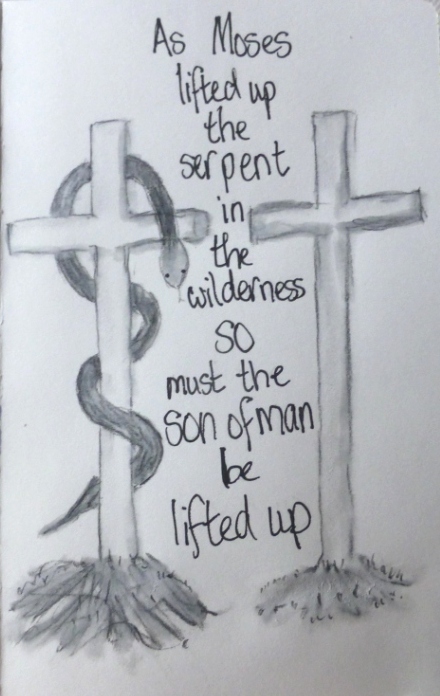 As Moses
lifted up
the
serpent
in
the
wilderness
so
must the
son of man
be
lifted up